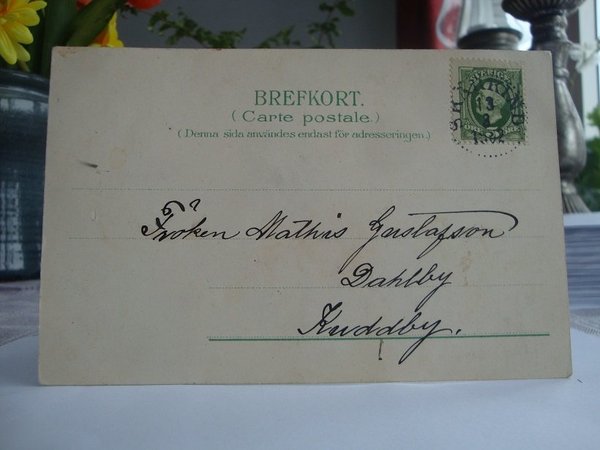 BREFKORT.
(Carte postale.)
(Denna sida användes endast för adresseringen.)
Fröken Mathis Gustafson
Dahlby
Kuddby.